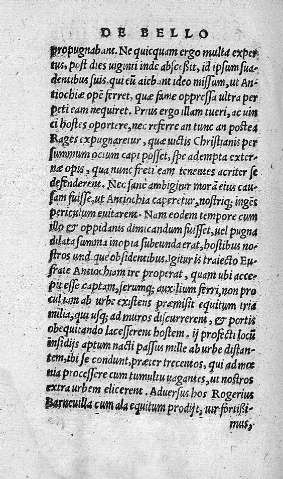 DE BELLO
propugnabant. Ne quicquam ergo multa exper
tus, post dies uiginti inde abscessit, id ipsum sua
dentibus suis, qui eũ aiebant ideo missum, ut An
tiochiæ opẽ ferret, quæ fame oppressa ultra per
peti eam nequiret. Prius ergo illam tueri, ac uin
ci hostes oportere, nec referre an tunc an postea
Rages expugnaretur, quæ uictis Christianis per
summum ocium capi posset, spe adempta exter
næ opis, qua nunc freti eam tenentes acriter se
defenderent. Nec sanè ambigitur morã eius cau
sam fuisse, ut Antiochia caperetur, nostriq; ingẽs
periculum euitarent. Nam eodem tempore cum
illo & oppidanis dimicandum fuisset, uel pugna
dilata summa inopia subeunda erat, hostibus no
stros undique obsidentibus. Igitur is traiecto Eu
frate Antiochiam ire properat, quam ubi acce
pit esse captam, serumq; auxilium ferri, non pro
cul iam ab urbe existens præmisit equitum tria
milia, qui usq; ad muros discurrerent, & portis
obequitando lacesserent hostem. ij profecti locũ
insidijs aptum nacti passus mille ab urbe distan
tem, ibi se condunt, præter trecentos, qui ad mœ
nia processere cum tumultu uagantes, ut nostros
extra urbem elicerent. Aduersus hos Rogerius
Barneuilla cum ala equitum prodijt, uir fortissi
mus,